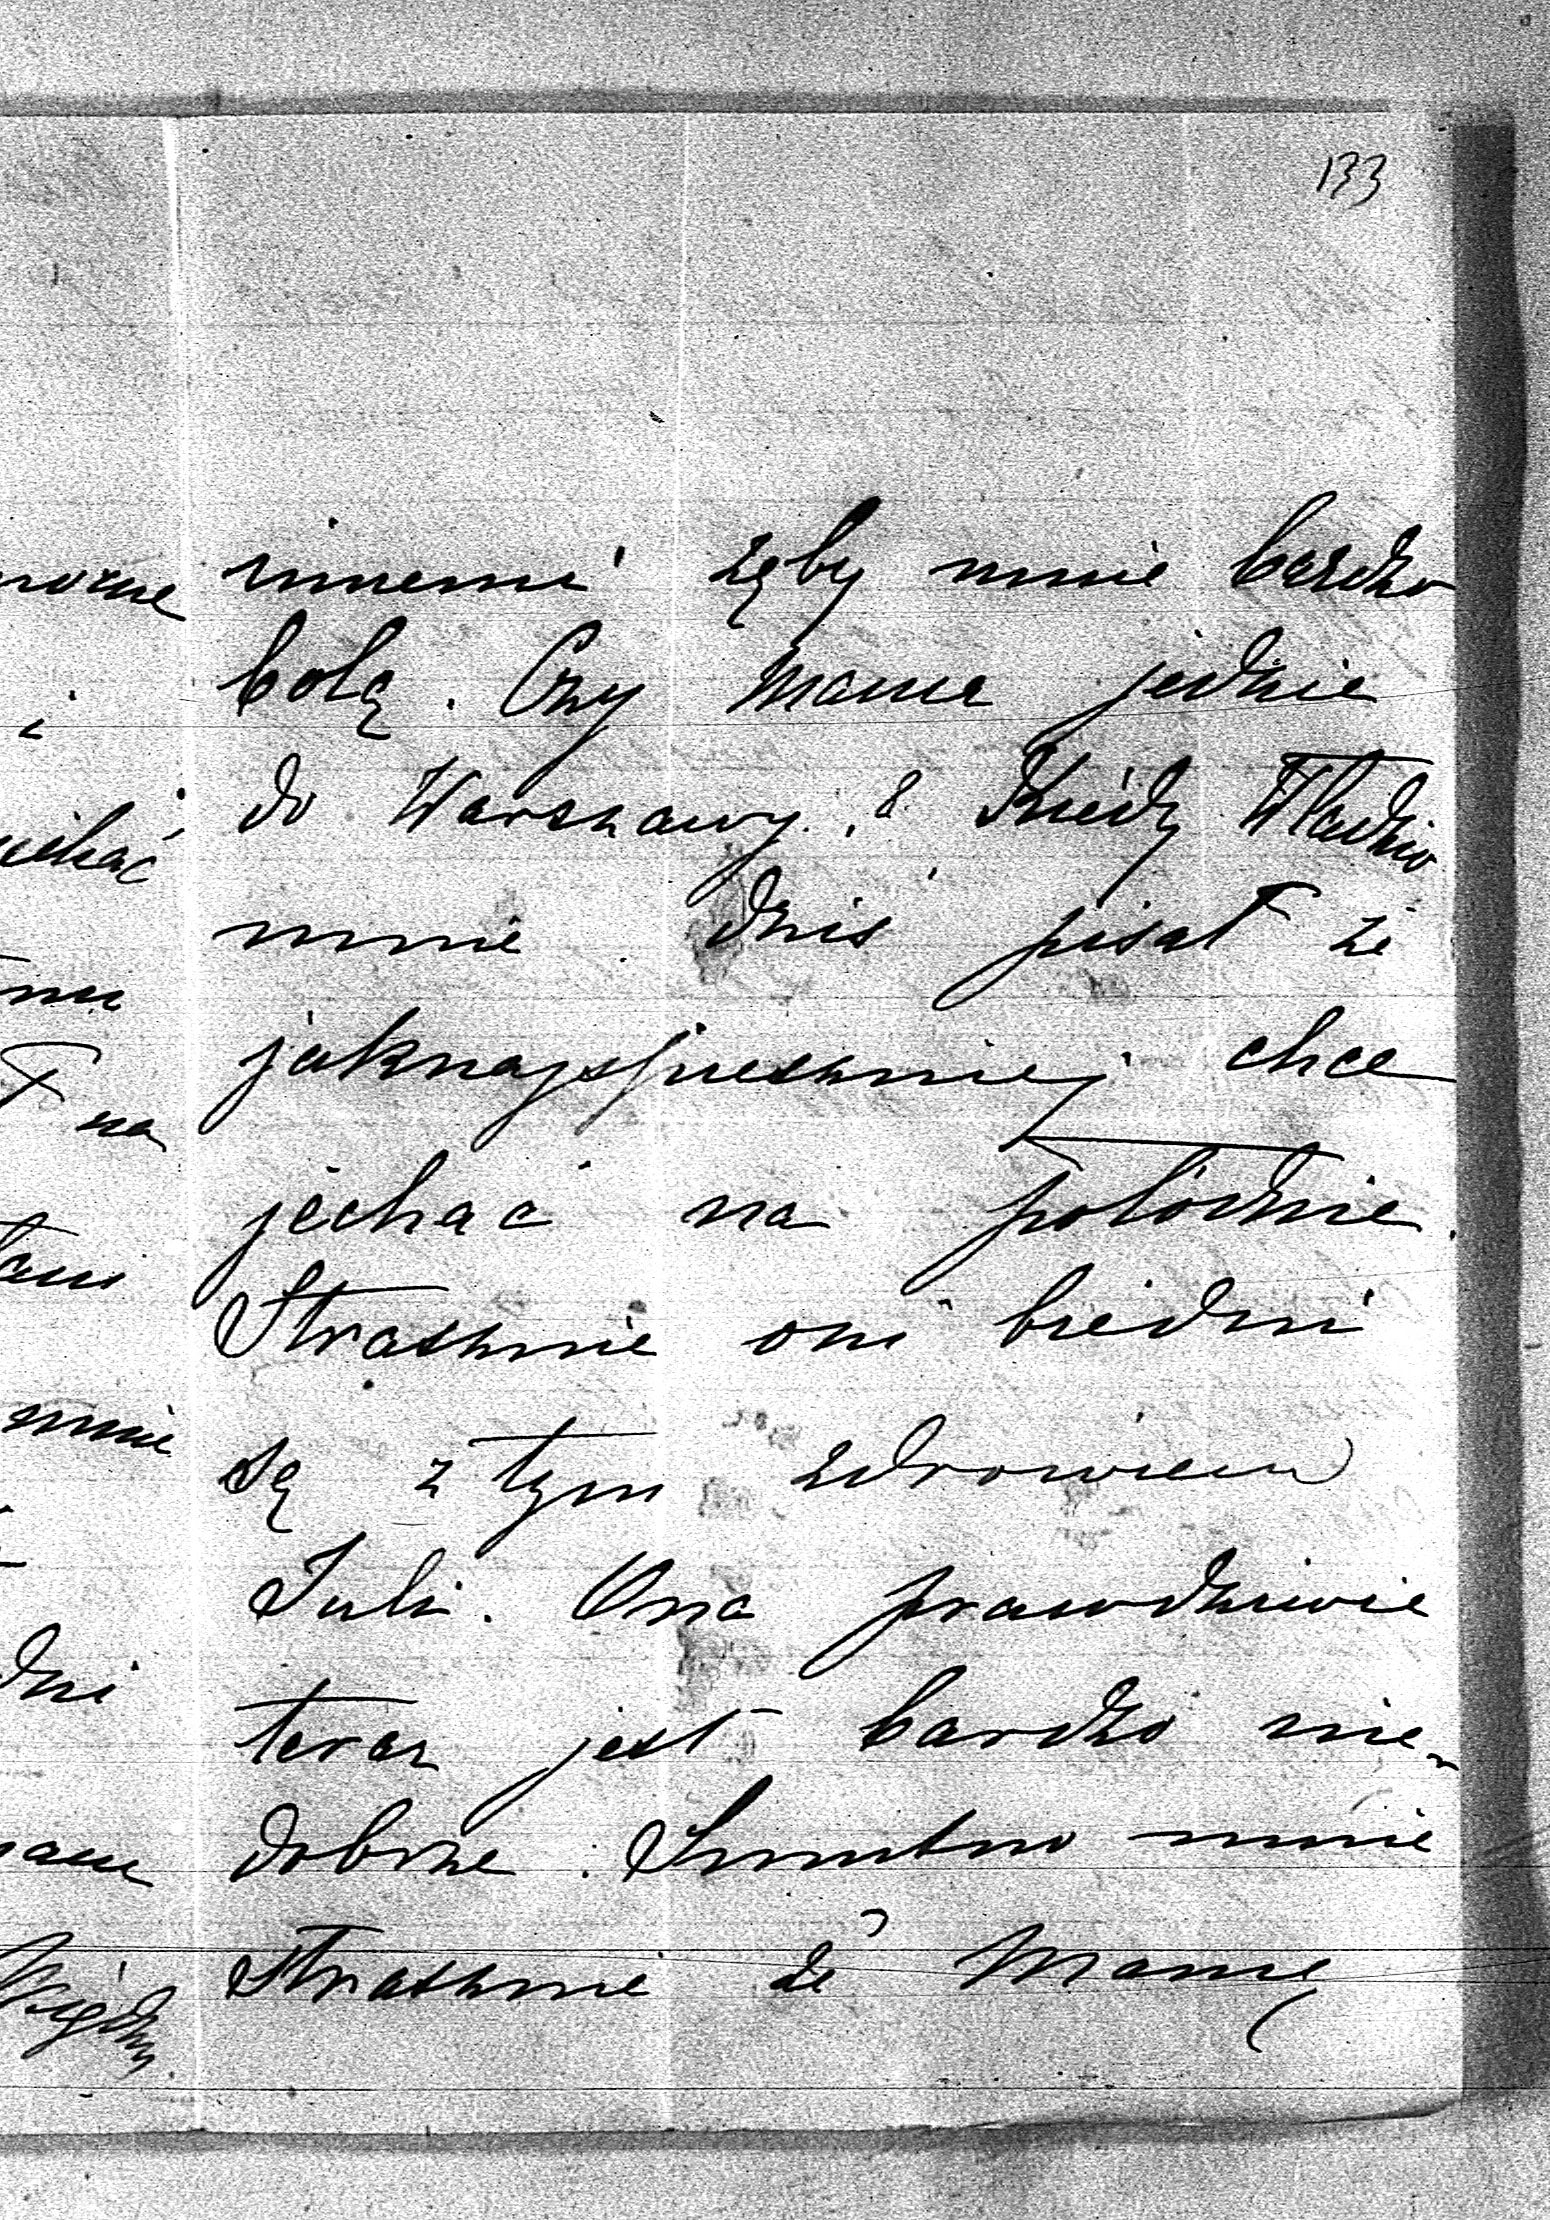 133
innemi zęby mnie bardzo
bolą. Czy Mama jedzie
do Warszawy? Kiedy Władzio
mnie dziś pisał że
jaknajspieszniej chce
jechać na połódnie.
Strasznie oni biedni
są z tym zdrowiem
Juli. Ona prawdziwie
teraz jest bardzo nie-
dobrze. Smutno mnie
strasznie że Mamę
i
mnie